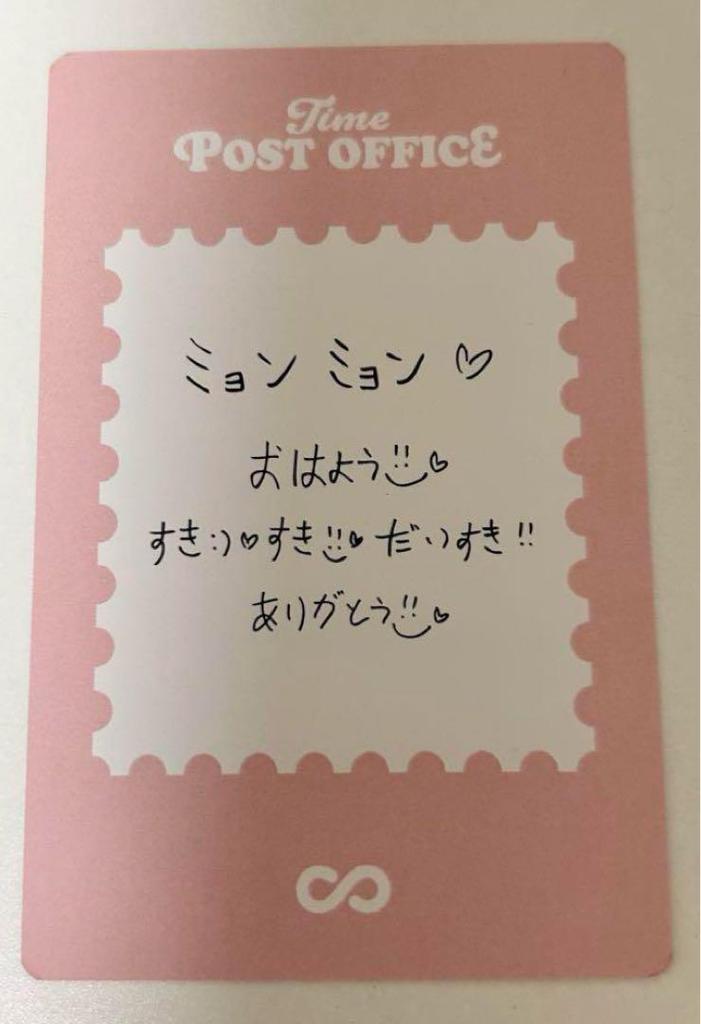 Time
POST OFFICE
ミョン ミョン ♡
おはよう!! ♡
すき:)♡すき!! ♥ だいすき!!
ありがとう!! ♡